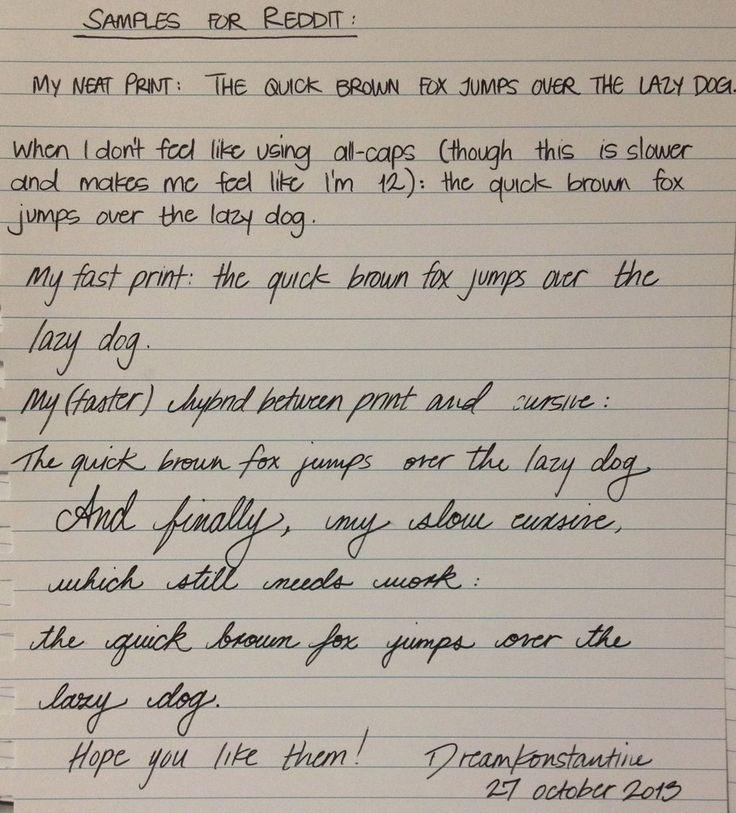 SAMPLES FOR REDDIT:
MY NEAT PRINT: THE QUICK BROWN FOX JUMPS OVER THE LAZY DOG.
When I don't feel like using all-caps (though this is slower
and makes me feel like I'm 12): the quick brown fox
jumps over the lazy dog.
My fast print: the quick brown fox jumps over the
lazy dog.
My (faster) hybrid between print and cursive:
The quick brown fox jumps over the lazy dog
And finally, my slow cursive,
which still needs work:
the quick brown fox jumps over the
lazy dog.
Hope you like them! DreamKonstantine
27 October 2013